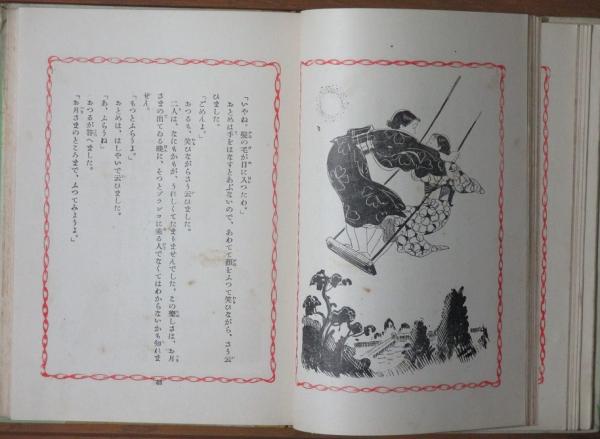 「いやね、髪の毛が目に入つたわ。」
おとめは手をはなすとあぶないので、あわてて顔をふつて笑ひながら、さう云
ひました。
「ごめんよ。」
おつるも、笑ひながらさう云ひました。
二人は、なにもかもが、うれしくてたまりませんでした。この楽しさは、お月
さまの出てゐる晩に、そつとブランコに乗る人でなくてはわからないかも知れま
せん。
「もつとふらうよ。」
おとめは、はしやいで云ひました。
「あ、ふらうね」
おつるが答へました。
「お月さまのところまで、ふつてみようよ。」